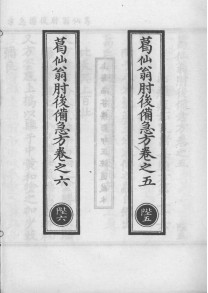 葛仙翁肘後備急方卷之五
陛五
葛仙翁肘後備急方卷之六
陛六